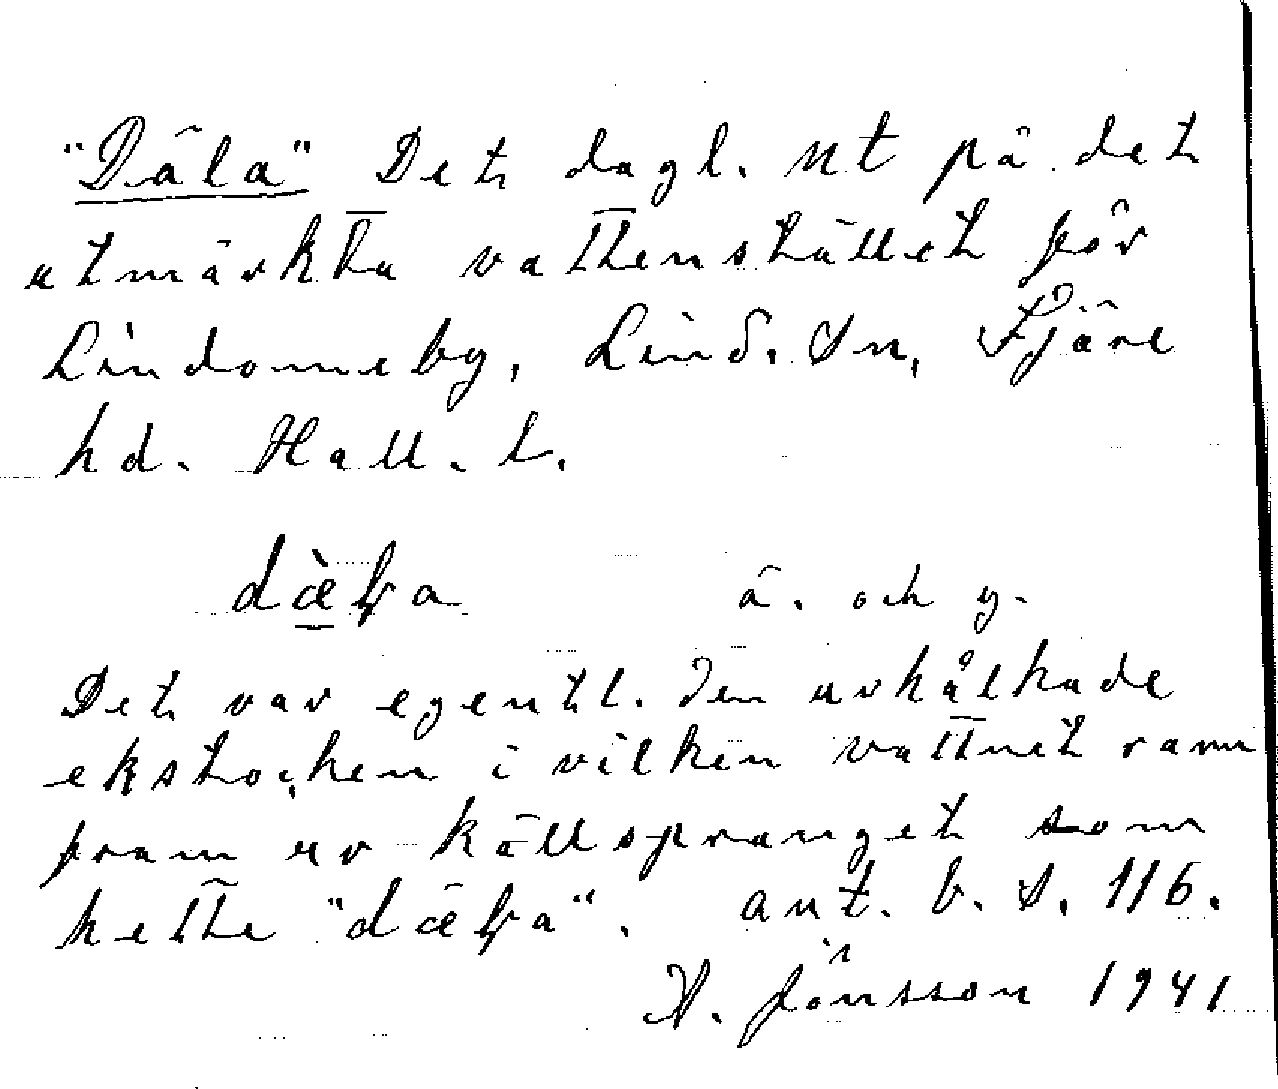 "Däla" Det dagl. nt på det
utmärkta vattenstället för
Lindomeby, Lind. Sn, Fjäre
hd. Hall. l.
ä. och y.
Det var egentl. den urhålkade
ekstocken i vilken vattnet rann
fram ur källspranget som
hette ant. b. s. 116.
Jönsson 1941